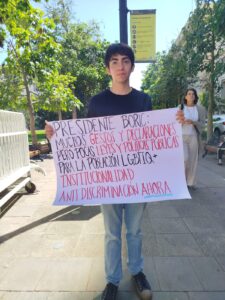 PRESIDENTE BORIC:
MUCHOS GESTOS Y DECLARACIONES
PERO POCAS LEYES Y POLÍTICAS PÚBLICAS
PARA LA POBLACIÓN LGBTIQ+
INSTITUCIONALIDAD
ANTI DISCRIMINACIÓN AHORA